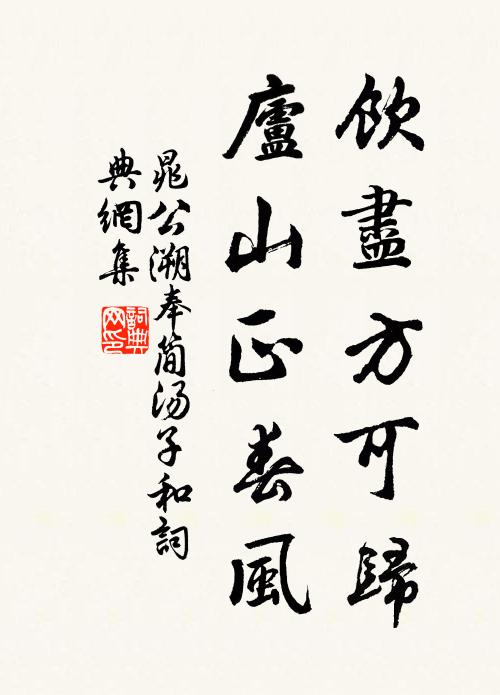 飲盡方可歸
廬山正春風
晁公溯奉簡湯子和詞
典網集
詞典网印